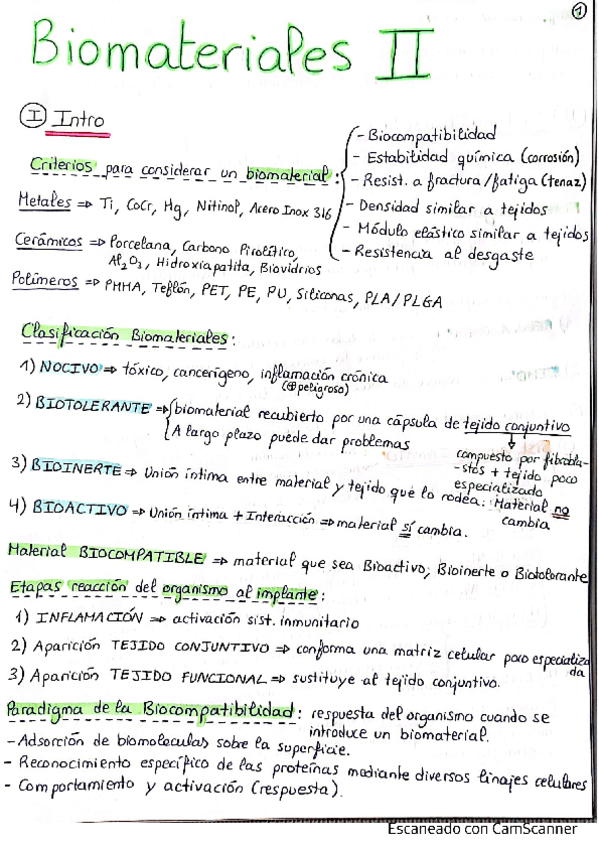 1
Biomateriales II
I Intro
Criterios para considerar un biomaterial:
- Biocompatibilidad
- Estabilidad química (corrosión)
- Resist. a fractura/fatiga (tenaz)
- Densidad similar a tejidos
- Módulo elástico similar a tejidos
- Resistencia al desgaste
Metales => Ti, CoCr, Hg, Nitinol, Acero Inox 316
Cerámicos => Porcelana, Carbono Pirolítico,
Al2O3, Hidroxiapatita, Biovidrios
Polímeros => PMMA, Teflón, PET, PE, PU, Siliconas, PLA/PLGA
Clasificación Biomateriales:
1) NOCIVO => tóxico, cancerígeno, inflamación crónica
(⊕peligroso)
2) BIOTOLERANTE => biomaterial recubierto por una cápsula de tejido conjuntivo
A largo plazo puede dar problemas
compuesto por fibrobla-
-stos + tejido poco
especializado
3) BIOINERTE => Unión íntima entre material y tejido que lo rodea. Material no
cambia
4) BIOACTIVO => Unión íntima + Interacción => material sí cambia.
Material BIOCOMPATIBLE => material que sea Bioactivo, Bioinerte o Biotolorante
Etapas reacción del organismo al implante:
1) INFLAMACIÓN => activación sist. inmunitario
2) Aparición TEJIDO CONJUNTIVO => conforma una matriz celular poco especializa
da
3) Aparición TEJIDO FUNCIONAL => sustituye al tejido conjuntivo.
Paradigma de la Biocompatibilidad: respuesta del organismo cuando se
introduce un biomaterial.
- Adsorción de biomoleculas sobre la superficie.
- Reconocimiento específico de las proteínas mediante diversos linajes celulares
- Comportamiento y activación (respuesta).
Escaneado con CamScanner